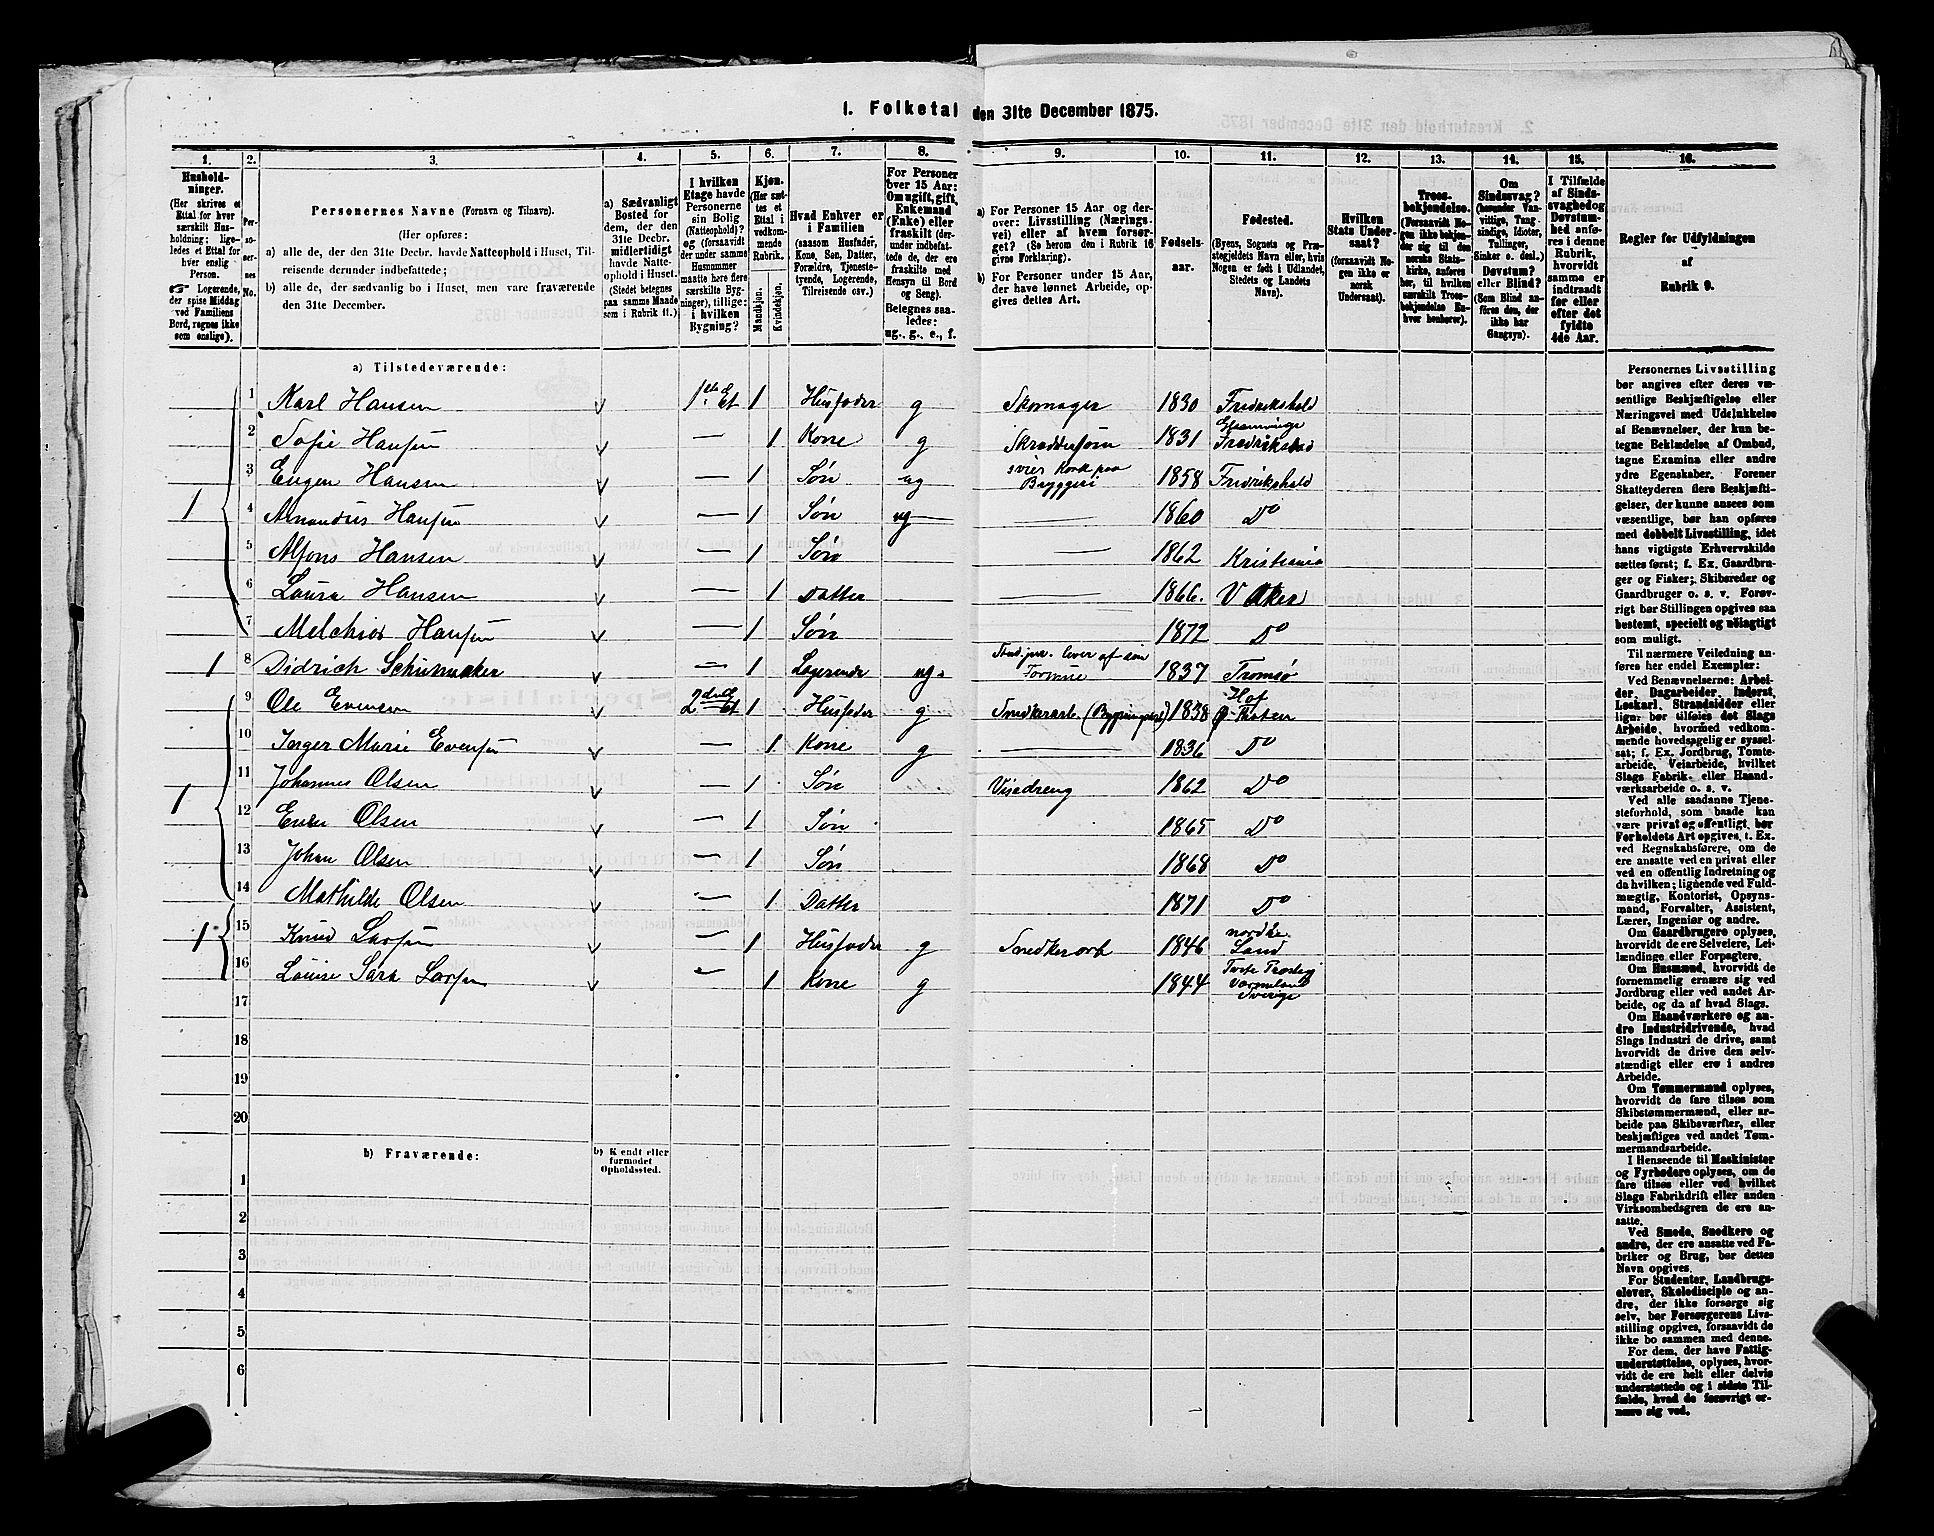 1. Folketal den 31te December 1875.
1. 2. 3. 4. 5. 6. 7. 8. 9. 10. 11. 12. 13. 14. 15. 16.
Husholdninger.
(Her skrives et Ettal for hver særskilt Husholdning; ligeledes et Ettal for hver enslig Person.
☞ Logerende, der spise Middag ved Familiens Bord, regnes ikke som enslige).
Personernes No.
Personernes Navne (Fornavn og Tilnavn).
(Her opføres:
a) alle de, der den 31te Decbr. havde Natteophold i Huset, Tilreisende derunder indbefattede;
b) alle de, der sædvanlig bo i Huset, men vare fraværende den 31te December.
a) Sædvanligt Bosted for dem, der den 31te Decbr. midlertidigt havde Natteophold i Huset. (Stedet betegnes paa samme Maade som i Rubrik 11.)
I hvilken Etage havde Personerne sin Bolig (Natteophold)? og (forsaavidt der under samme Husnummer maatte høre flere særskilte Bygninger), tillige: i hvilken Bygning?
Kjøn. (Her sættes et Ettal i vedkommende Rubrik.
Mandkjøn. Kvindekjøn.
Hvad Enhver er i Familien (saasom Husfader, Kone, Søn, Datter, Forældre, Tjenestetyende, Logerende, Tilreisende osv.)
For Personer over 15 Aar: Om ugift, gift, Enkemand (Enke) eller fraskilt (derunder indbefattede, de, der ere fraskilte med Hensyn til Bord og Seng). Betegnes saaledes: ug., g., e., f.
a) For Personer 15 Aar og derover: Livsstilling (Næringsvei) eller af hvem forsørget? (Se herom den i Rubrik 16 givne Forklaring).
b) For Personer under 15 Aar, der have lønnet Arbeide, opgives dettes Art.
Fødselsaar.
Fødested.
(Byens, Sognets og Præstegjeldets Navn eller, hvis Nogen er født i Udlandet, Stedets og Landets Navn).
Hvilken Stats Undersaat? (forsaavidt Nogen ikke er norsk Undersaat).
Troesbekjendelse. (Forsaavidt Nogen ikke bekjender sig til den norske Statskirke, anføres her, til hvilken særskilt Troesbekjendelse Enhver henhører).
Om Sindssvag? (herunder Vanvittige, Tungsindige, Idioter, Tullinger, Sinker o. desl.) Døvstum? eller Blind? (Som Blind anføres den, der ikke har Gangsyn).
I Tilfælde af Sindssvaghed og Døvstumhed anføres i denne Rubrik, hvorvidt samme er indtraadt før eller efter det fyldte 4de Aar.
Regler for Udfyldningen
af
Rubrik 9.
a) Tilstedeværende:
1 1 Karl Hansen 1ste Et 1 Husfader g Skomager 1830 Fredrikshald
2 Sofie Hansen — 1 Kone g 1831 Fredrikstad
3 Eugen Hansen — 1 Søn ug Bryggeri 1858 Fredrikshald
4 Amandus Hansen — 1 Søn ug — 1860 Do
5 Alfons Hansen — 1 Søn — 1862 Kristiania
6 Laura Hansen 1 Datter 1866. V Aker
7 Melchior Hansen — 1 Søn 1872 Do
1 8 Didrich Schumaker — 1 Logerende ug. Stud. jur. lever af sin Formue 1837 Tromsø
1 9 Ole Evensen 2den Et 1 Husfader g Snedkerarb. 1838 Hof
10 Inger Marie Evensen — 1 Kone g — 1836 Do
11 Johannes Olsen — 1 Søn Visedreng 1862 Do
12 Even Olsen — 1 Søn 1865 Do
13 Johan Olsen — 1 Søn 1868 Do
14 Mathilde Olsen — 1 Datter 1871 Do
1 15 Knud Larsen — 1 Husfader g Snedkerarb 1846 nordre Land
16 Louise Sara Larsen — 1 Kone g 1844 Vermland Sverige
17
18
19
20
b) Fraværende:
b) Kendt eller formodet Opholdssted.
1
2
3
4
5
6
Personernes Livsstilling
bør angives efter deres væ-
sentlige Beskjæftigelse eller
Næringsvei med Udelukkelse
af Benævnelser, der kun be-
tegne Beklædelse af Ombud,
tagne Examina eller andre
ydre Egenskaber. Forener
Skatteyderen flere Beskjæfti-
gelser, der kunne ansees som
væsentlige, bør han opføres
med dobbelt Livsstilling, idet
hans vigtigste Erhvervskilde
sættes først; f. Ex. Gaardbru-
ger og Fisker; Skibsreder og
Gaardbruger o. s. v. Forøv-
rigt bør Stillingen opgives saa
bestemt, specielt og nøiagtigt
som muligt.
Til nærmere Veiledning an-
føres her endel Exempler:
Ved Benævnelserne: Arbei-
der, Dagarbeider, Inderst,
Løskarl, Strandsidder eller
lign. bør tilføies det Slags
Arbeide, hvormed vedkom-
mende hovedsagelig er syssel-
sat; f. Ex. Jordbrug, Tomte-
arbeide, Veiarbeide, hvilket
Slags Fabrik- eller Haand-
værksarbeide o. s. v.
Ved alle saadanne Tjene-
steforhold, som baade kan
være privat og offentligt, bør
Forholdets Art opgives, f. Ex.
ved Regnskabsførere, om de
ere ansatte ved en privat eller
ved en offentlig Indretning og
da hvilken; lignende ved Fuld-
mægtig, Kontorist, Opsyns-
mand, Forvalter, Assistent,
Lærer, Ingeniør og andre.
Om Gaardbrugere oplyses,
hvorvidt de ere Selveiere, Lei-
lændinge eller Forpagtere.
Om Husmænd, hvorvidt de
fornemmelig ernære sig ved
Jordbrug eller ved andet Ar-
beide, og da af hvad Slags.
Om Haandværkere og an-
dre Industridrivende, hvad
Slags Industri de drive, samt
hvorvidt de drive den selv-
stændigt eller ere i andres
Arbeide.
Om Tømmermænd oplyses,
hvorvidt de fare tilsøs som
Skibstømmermænd, eller ar-
beide paa Skibsværfter, eller
beskjæftiges ved andet Tøm-
mermandsarbeide.
I Henseende til Maskinister
og Fyrbødere oplyses, om de
fare tilsøs eller ved hvilket
Slags Fabrikdrift eller anden
Virksomhedsgren de ere an-
satte.
Ved Smede, Snedkere og
andre, der ere ansatte ved Fa-
briker og Brug, bør dettes
Navn opgives.
For Studenter, Landbrugs-
elever, Skoledisciple og an-
dre, der ikke forsørge sig
selv, bør Forsørgerens Livs-
stilling opgives, forsaavidt de
ikke bo sammen med denne.
For dem, der have Fattig-
understøttelse, oplyses, hvor-
vidt de ere helt eller delvis
understøttede og i sidste Til-
fælde, hvad de forøvrigt er-
nære sig ved.